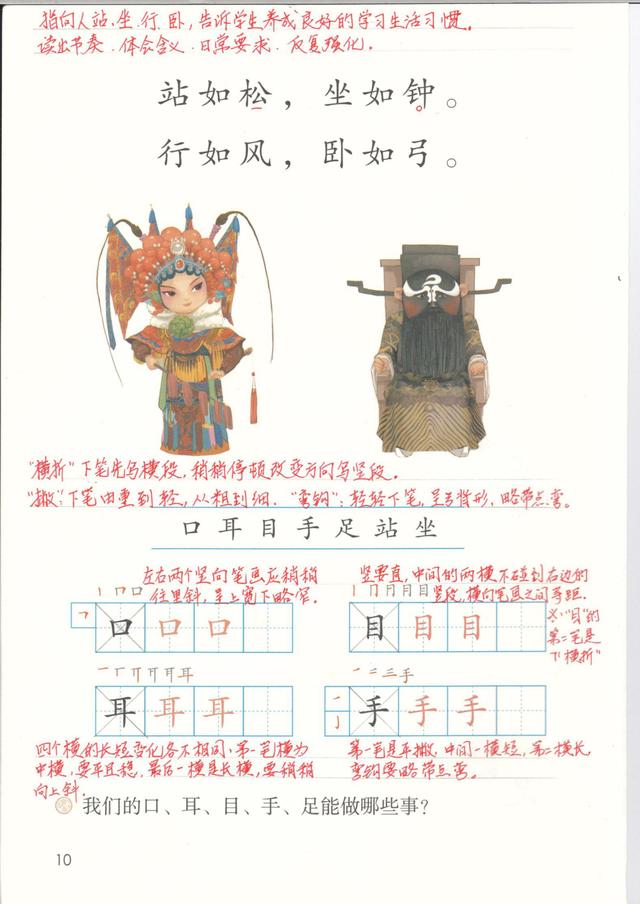 指向人站、坐、行、卧，告诉学生养成良好的学习生活习惯。
读出节奏、体会含义、日常要求、反复强化。
站如松，坐如钟。
行如风，卧如弓。
"横折"下笔先写横段，稍稍停顿改变方向写竖段。
"撇"：下笔由重到轻，从粗到细．"弯钩"：轻轻下笔，呈弓背形，略带点弯。
口耳目手足站坐
左右两个竖向笔画应稍稍
往里斜，呈上宽下略窄．
竖要直，中间的两横不碰到右边的
竖段，横向笔画之间等距．
口 口 口
目 目 目
※："目"的
第二笔是
"横折"
耳 耳 耳
手 手 手
四个横的长短变化各不相同，第一笔横为
中横，要平且稳，最后一横是长横，要稍稍
向上斜．
第一笔是平撇，中间一横短，第二横长
弯钩要略带点弯。
我们的口、耳、目、手、足能做哪些事？
10